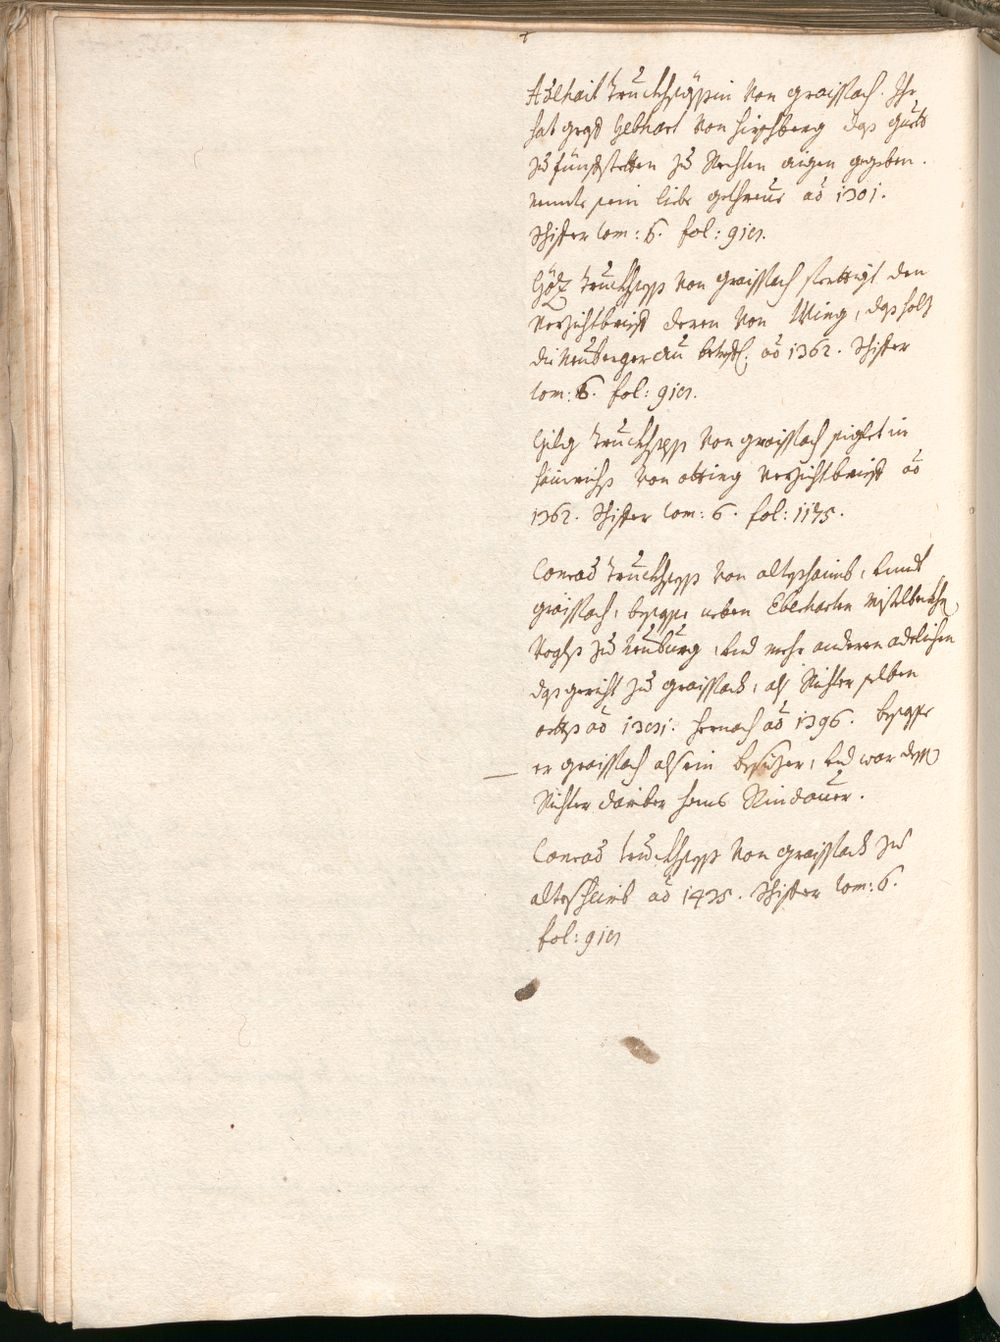 Adlhait Truckhseßin von Graisßach. Ihr
hat graf Gebhart von Hirschberg das guett
zu Fünfstetten zu Rechten aigen gegeben.
nennts sein liebe gethreue aō 1301.
Schifer tom: 6. fol:
Götz Truckhseß von Graisßach ferttigt den
Verzichtbrief deren von Wing, das holz
die Neuberger au betreff. aō 1362. Schifer
tom: 6. fol:
Gilg Truckhseß von Graisßach siglet in
Hainrichs von otting Verzichtbrief aō
1362. Schifer tom: 6. fol: 1175.
Conrad Truckhseß von alteshaimb, sunst
Graisßach, besasse neben Eberharten Mistelbeckh,
Vogts zu Neuburg, und mehr anderen adelichen
das gericht zu Graisßach, als Richter selben
orths aō hernach aō 1396. besasse
er Graisßach als ein besitzer, und war dess
Richter darüber Hans Rindauer.
Conrad Truckhseß von Graisßach zu
alteshaimb aō 1435. Schifer tom: 6.
fol: